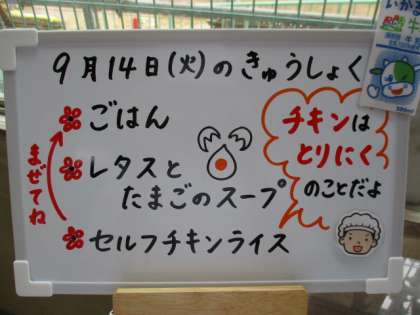 9月14日(火)のきゅうしょく
ごはん
レタスと
たまごのスープ
セルフチキンライス
まぜてね
チキンは
とりにく
のことだよ